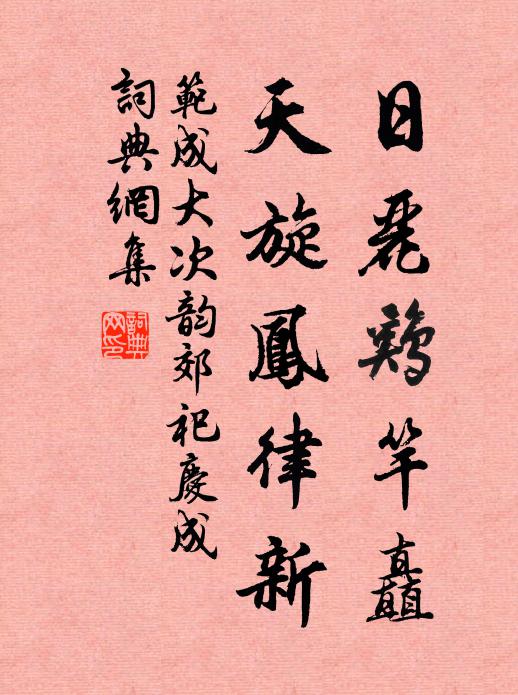 日麗鷄竿矗
天旋鳳律新
範成大次韵郊祀慶成
詞典網集
詞典
网印